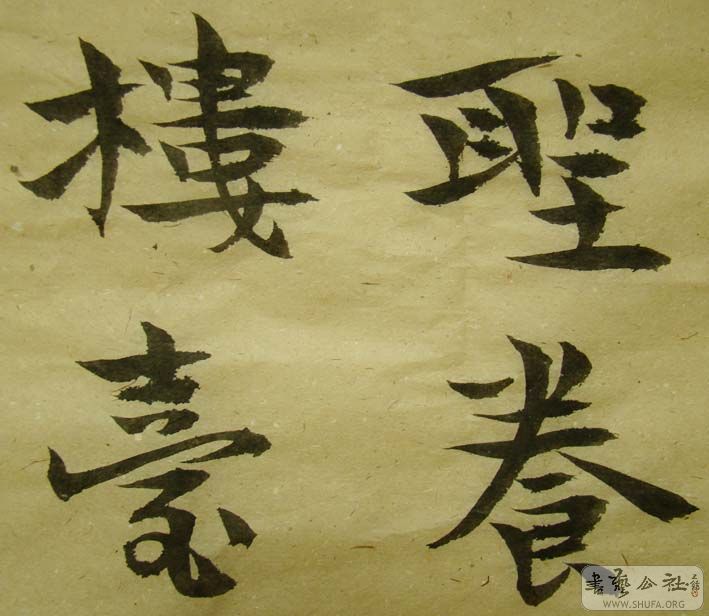 聖養
樓臺
書藝公社
WWW.SHUFA.ORG